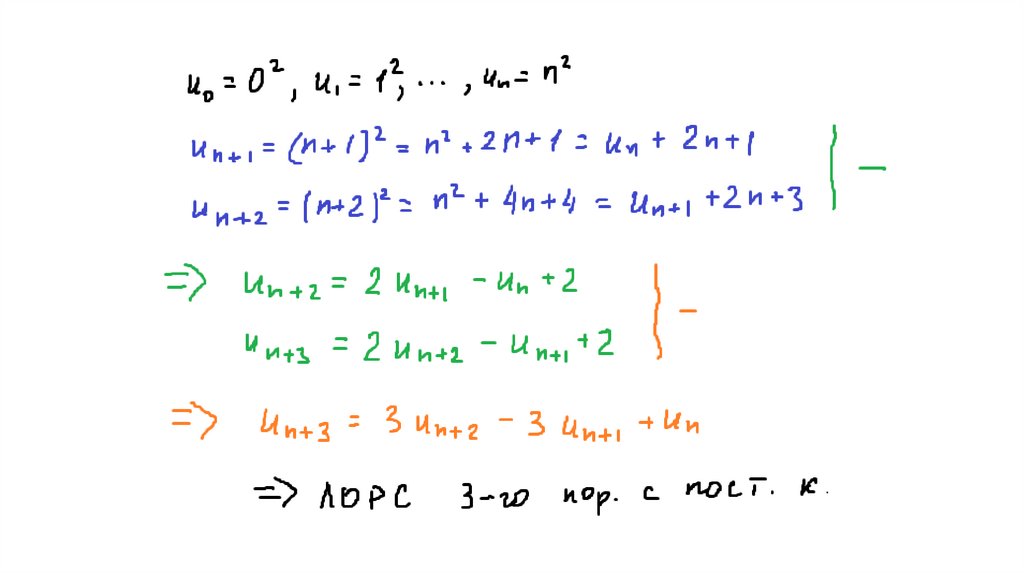 u₀ = 0², u₁ = 1², ..., uₙ = n²
uₙ₊₁ = (n+1)² = n² + 2n + 1 = uₙ + 2n+1
uₙ₊₂ = (n+2)² = n² + 4n+4 = uₙ₊₁ + 2n+3 | −
=> uₙ₊₂ = 2 uₙ₊₁ − uₙ + 2
uₙ₊₃ = 2 uₙ₊₂ − uₙ₊₁ + 2 } −
=> uₙ₊₃ = 3 uₙ₊₂ − 3 uₙ₊₁ + uₙ
=> ЛОРС 3-го пор. с пост. к.